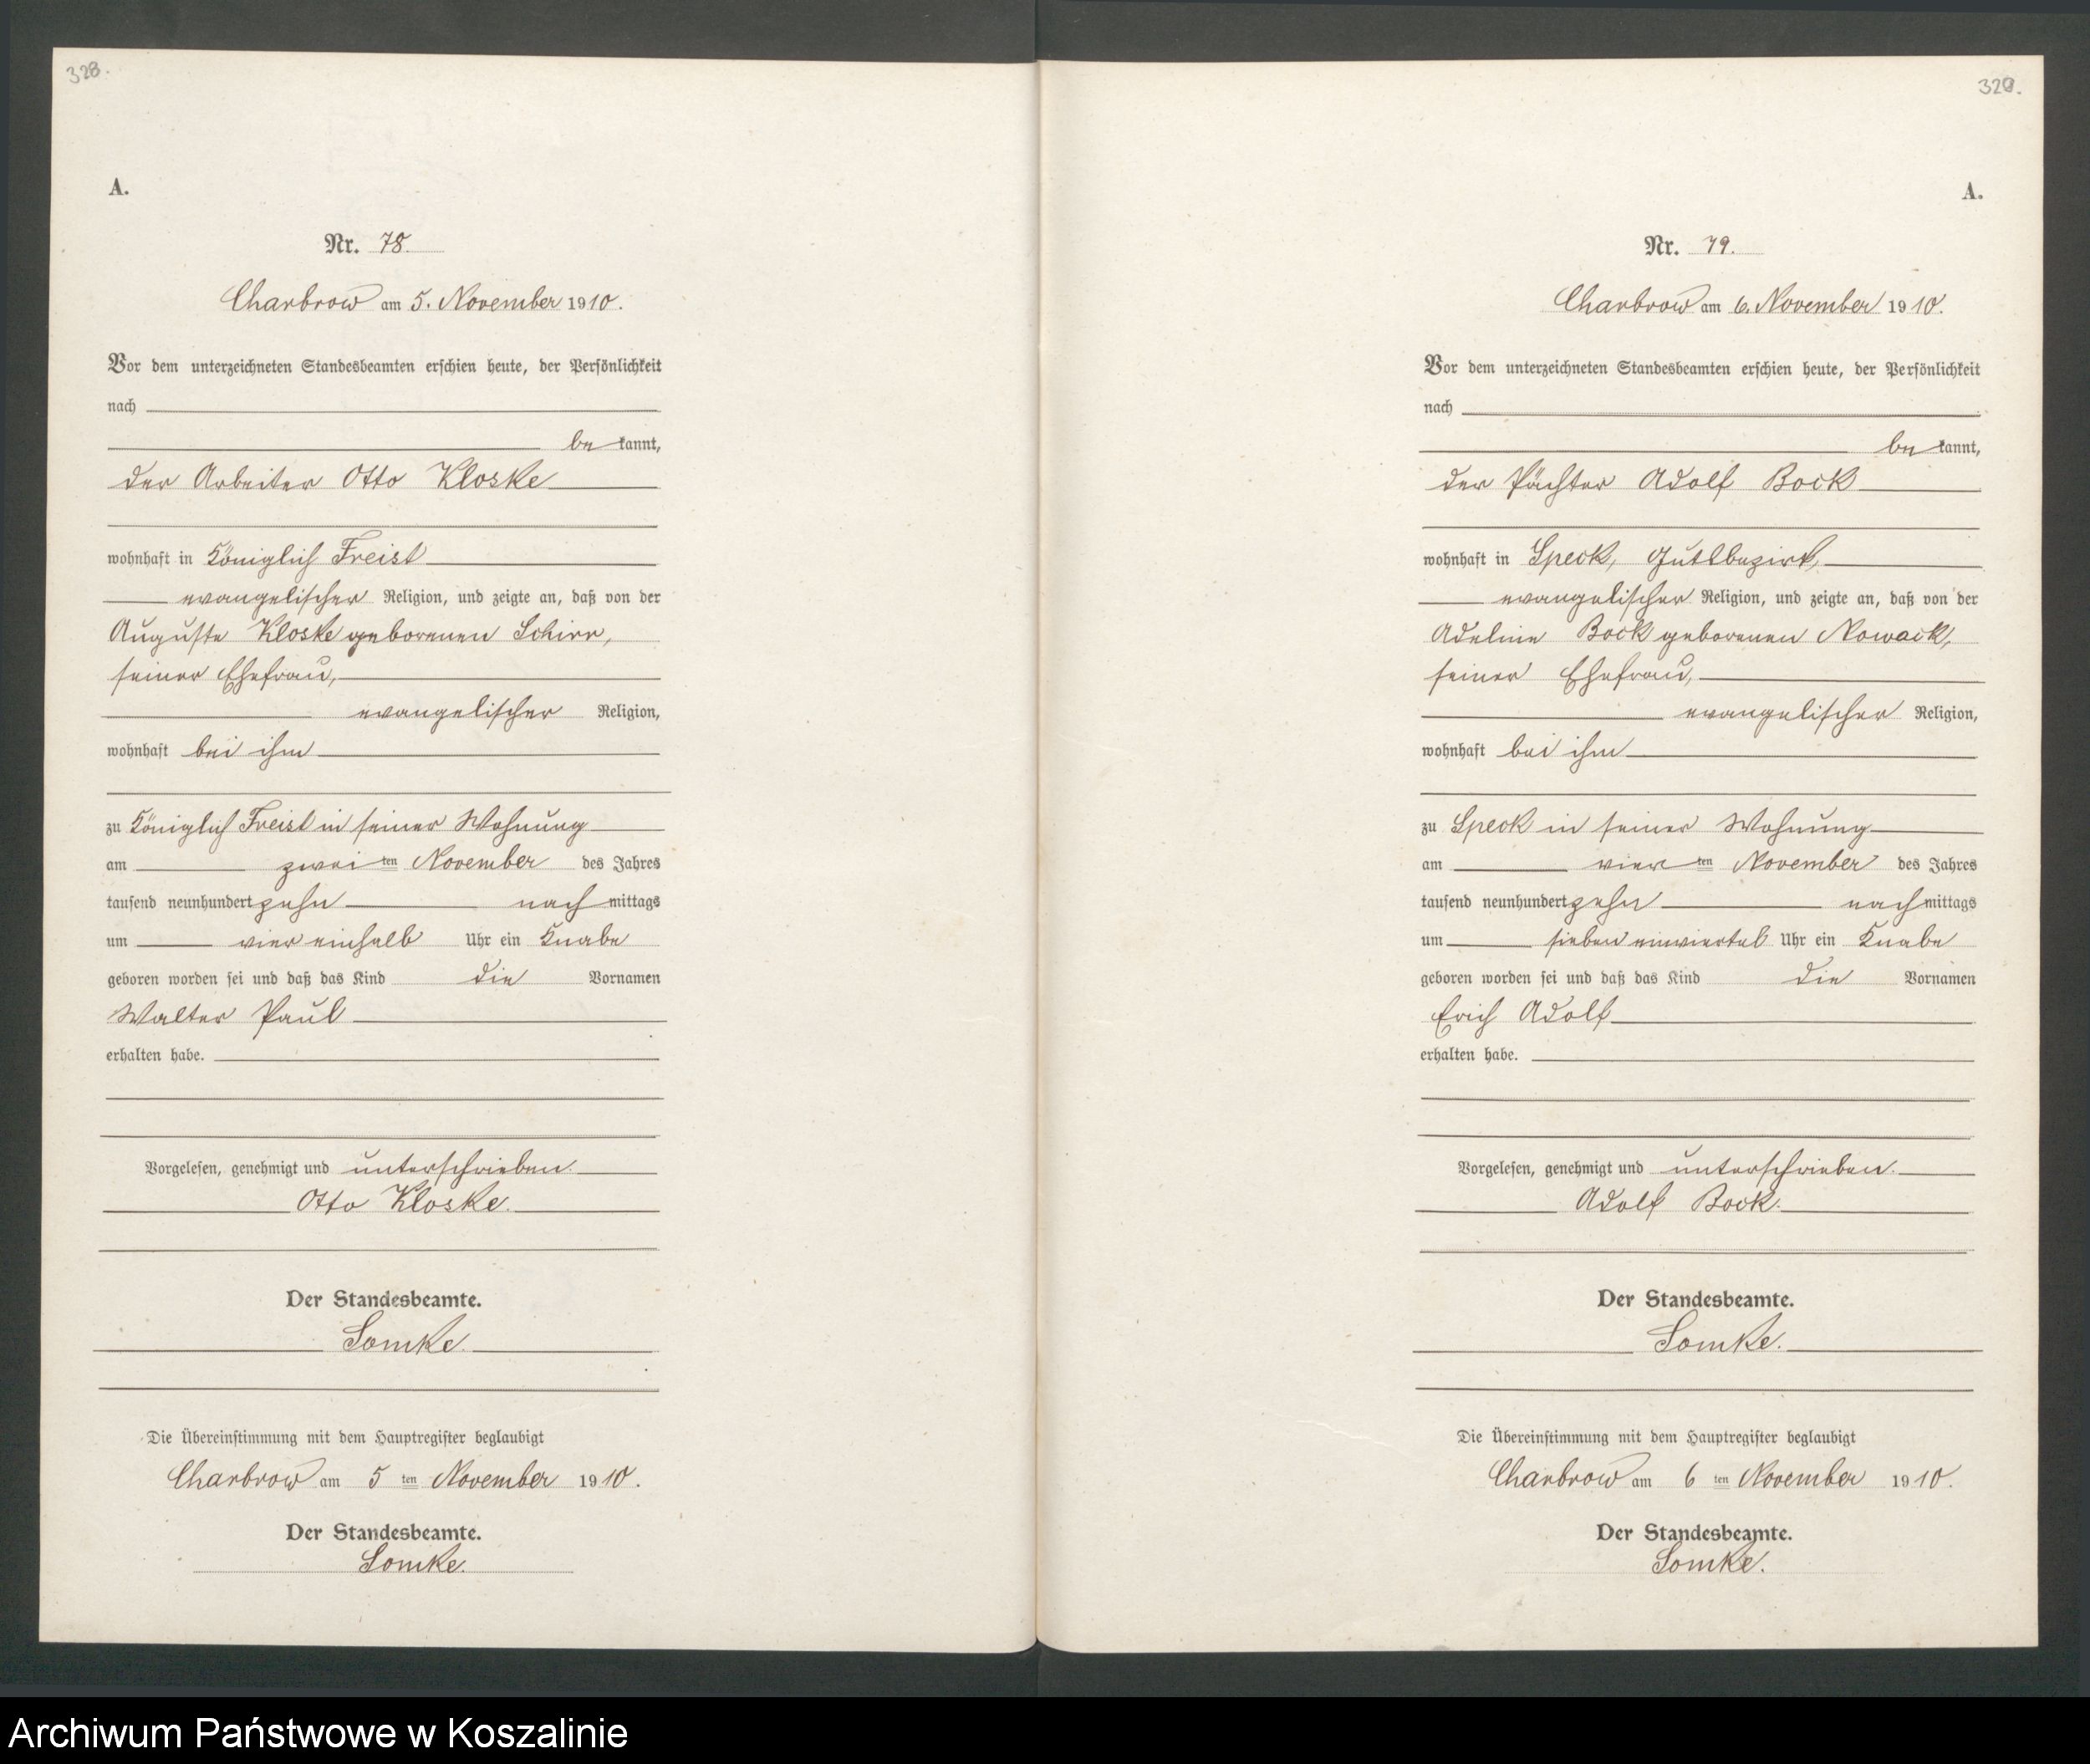 328.
A.
Nr. 78.
Charbrow am 5. November 1910.
Vor dem unterzeichneten Standesbeamten erschien heute, der Persönlichkeit
nach
be kannt,
der Arbeiter Otto Kloske
wohnhaft in Königlich Freist
evangelischer Religion, und zeigte an, daß von der
Auguste Kloske geborenen Schirr,
seiner Ehefrau,
evangelischer Religion,
wohnhaft bei ihm
zu Königlich Freist in seiner Wohnung
am zwei ten November des Jahres
tausend neunhundert zehn nach mittags
um vier einhalb Uhr ein Knabe
geboren worden sei und daß das Kind die Vornamen
Walter Paul
erhalten habe.
Vorgelesen, genehmigt und unterschrieben.
Otto Kloske.
Der Standesbeamte.
Lomke.
Die Übereinstimmung mit dem Hauptregister beglaubigt
Charbrow am 5 ten November 1910.
Der Standesbeamte.
Lomke.
329.
A.
Nr. 79.
Charbrow am 6. November 1910.
Vor dem unterzeichneten Standesbeamten erschien heute, der Persönlichkeit
nach
be kannt,
der Pächter Adolf Bock
wohnhaft in Speck, Gutsbezirk,
evangelischer Religion, und zeigte an, daß von der
Adeline Bock geborenen Nowack,
seiner Ehefrau,
evangelischer Religion,
wohnhaft bei ihm
zu Speck in seiner Wohnung
am vier ten November des Jahres
tausend neunhundert zehn nach mittags
um sieben einviertel Uhr ein Knabe
geboren worden sei und daß das Kind die Vornamen
Erich Adolf
erhalten habe.
Vorgelesen, genehmigt und unterschrieben.
Adolf Bock.
Der Standesbeamte.
Lomke.
Die Übereinstimmung mit dem Hauptregister beglaubigt
Charbrow am 6 ten November 1910.
Der Standesbeamte.
Lomke.
Archiwum Państwowe w Koszalinie